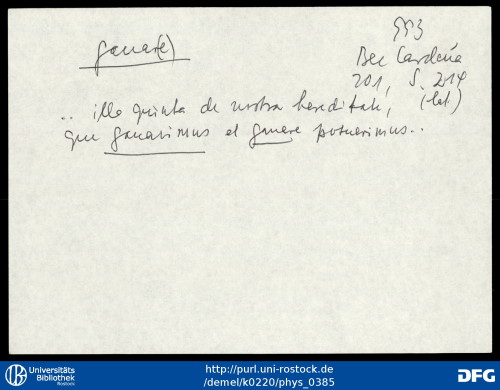 993
ganar(e)
Bec Cardeña
201, S. 214
(lat)
.. illa quinta de nostra hereditate,
que ganavimus et ganare potuerimus..
Universitäts
Bibliothek
Rostock
http://purl.uni-rostock.de
/demel/k0220/phys_0385
DFG